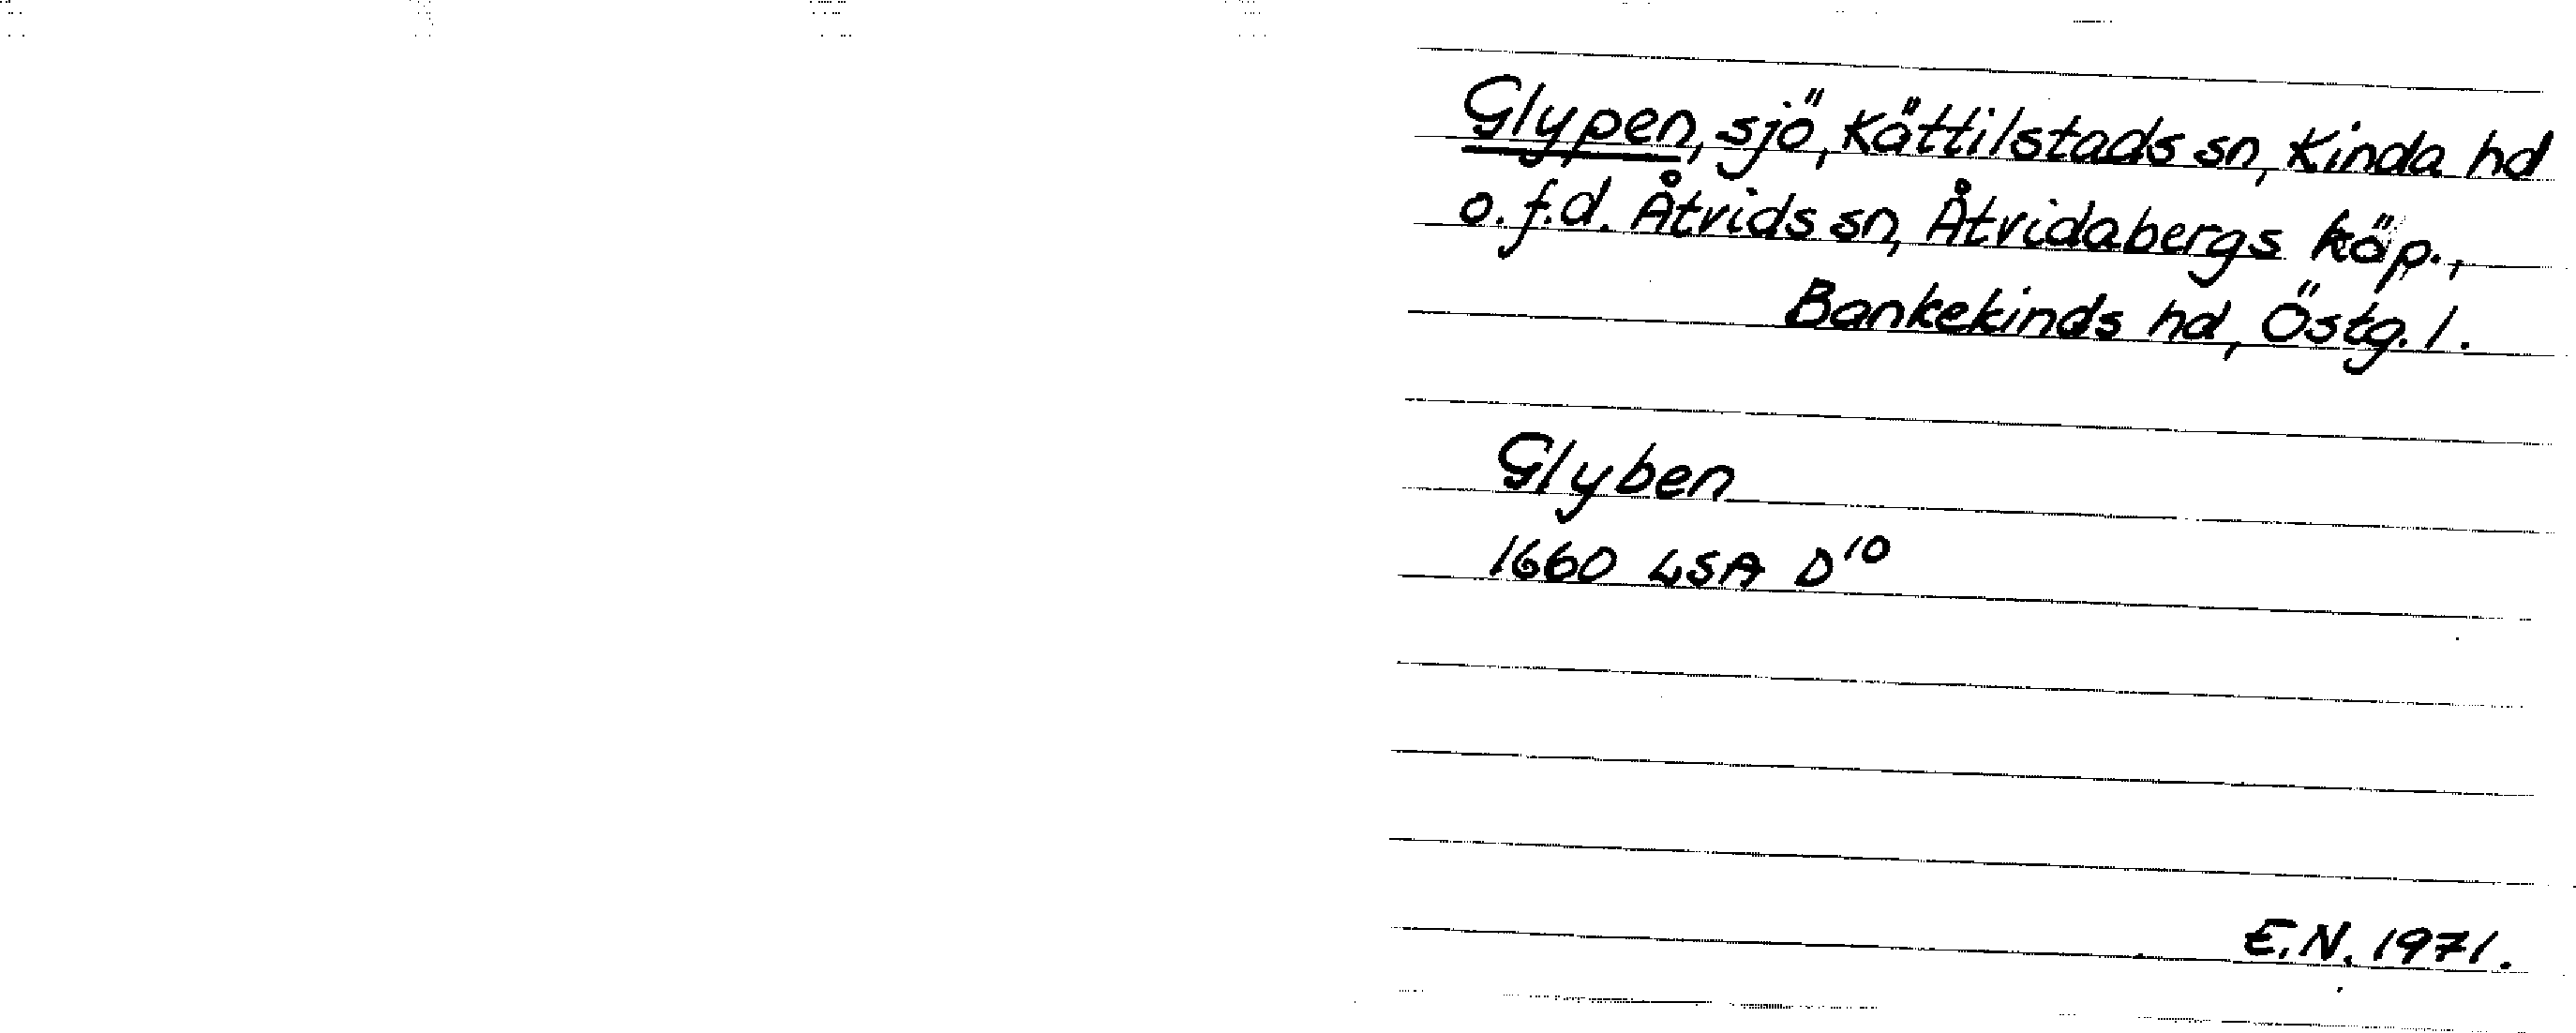 Glypen, sjö, Kättilstads sn, Kinda hd
o. f.d. Åtvids sn, Åtvidabergs köp.,
Bankekinds hd, Östg. l.
Glyben
1660 LSA D10
E.N. 1971.